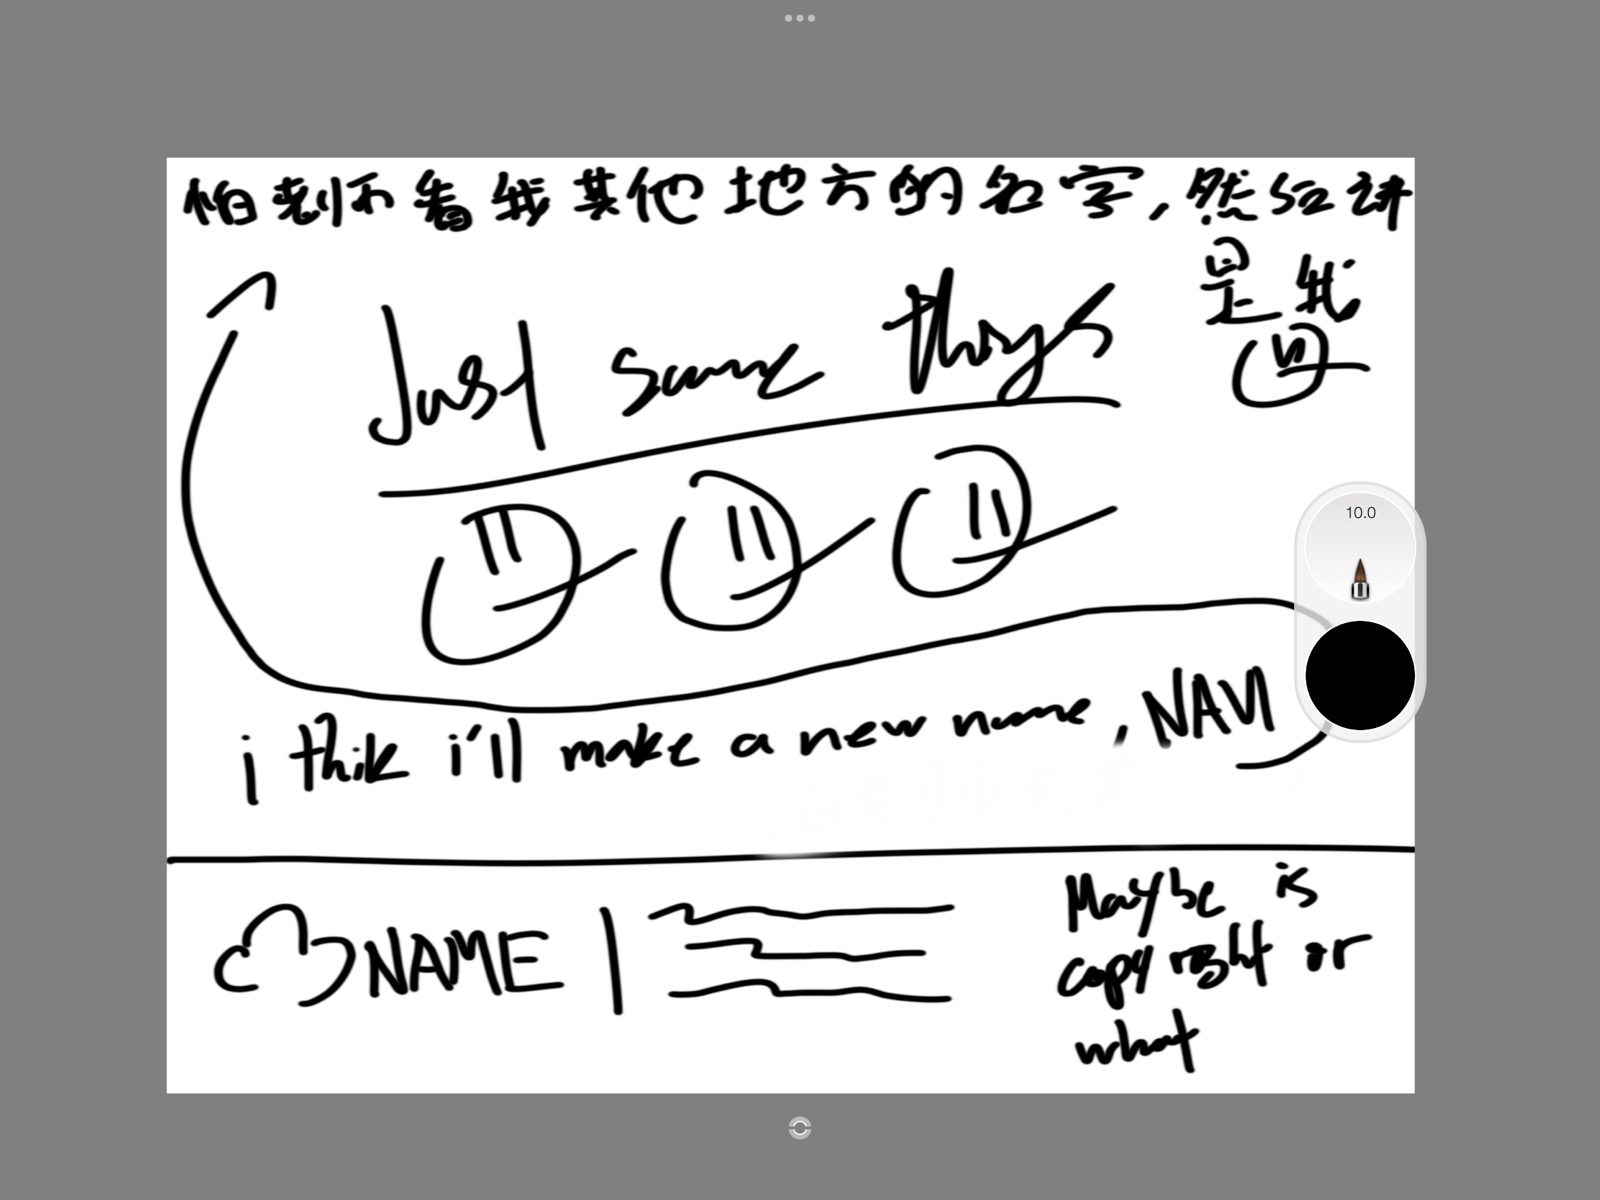 怕老师看我其他地方的名字,然后讲
是我
Just some things
i thik i'll make a new name, NAVI
NAME
Maybe is
copyright or
what
10.0